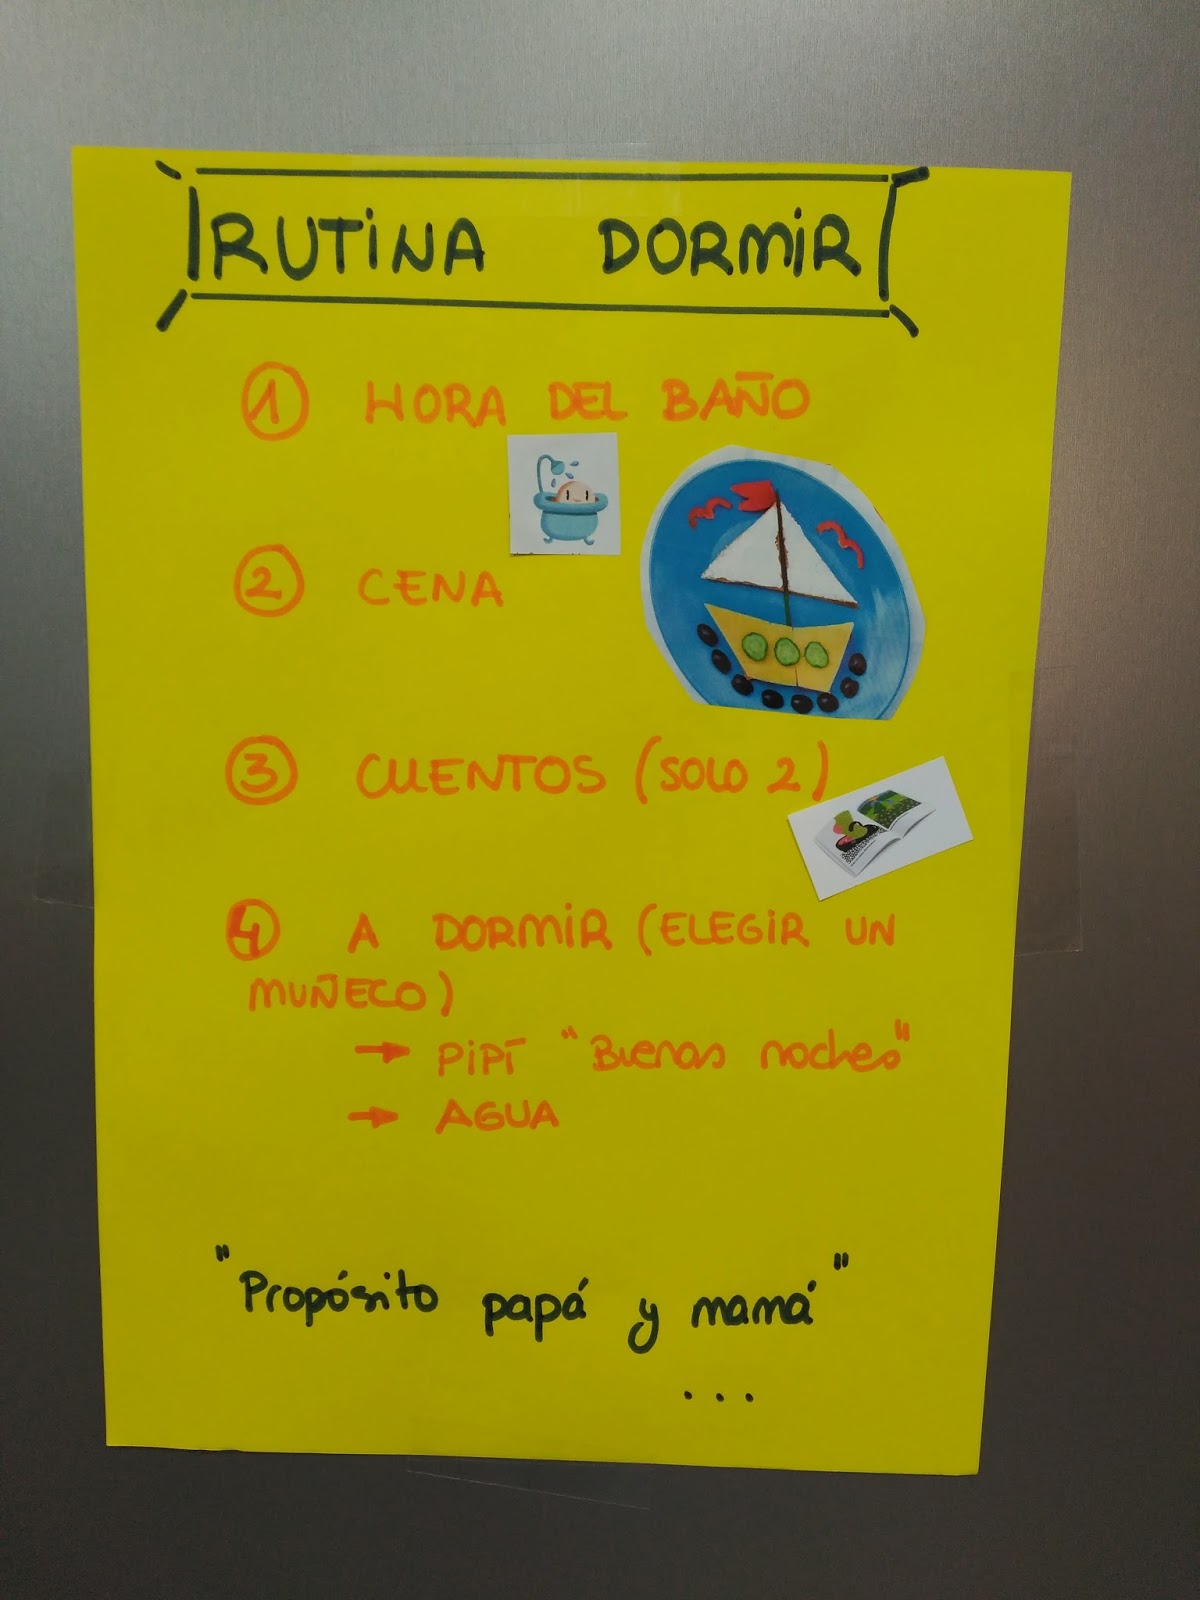 RUTINA DORMIR
1 HORA DEL BAÑO
2 CENA
3 CUENTOS (SOLO 2)
4 A DORMIR (ELEGIR UN
MUÑECO)
→ PIPÍ "Buenas noches"
→ AGUA
"Propósito papá y mamá"
...